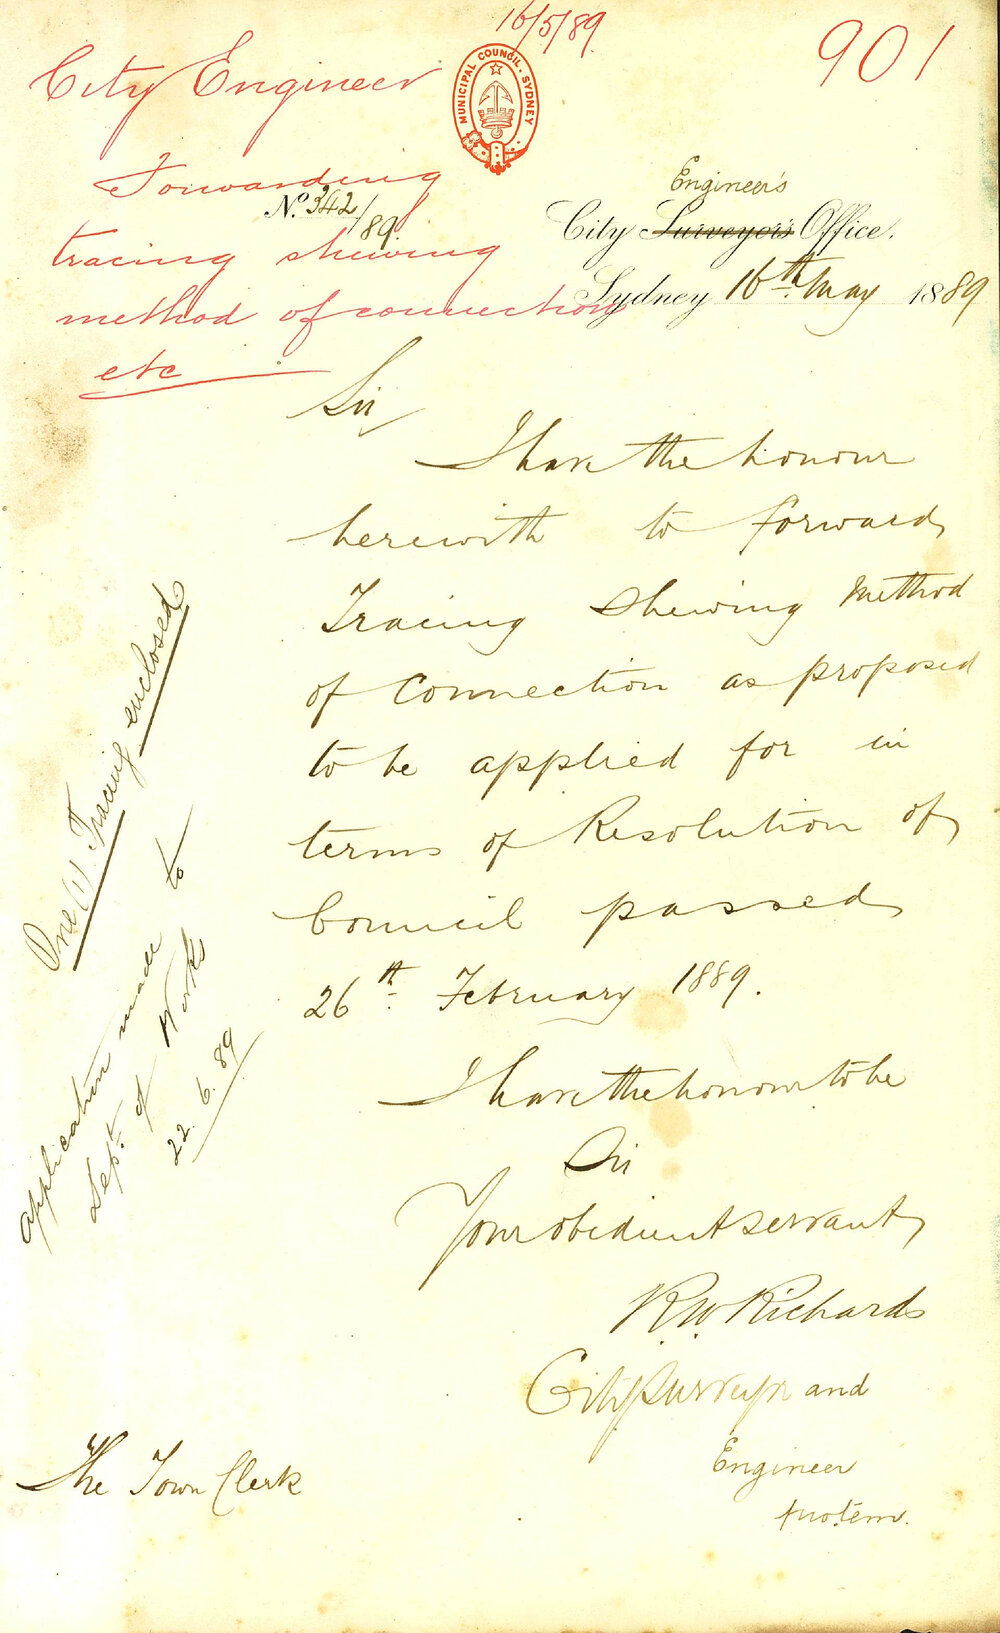 16/5/89.
901
City Engineer
MUNICIPAL COUNCIL. SYDNEY
Forwarding
tracing shewing
method of connection
etc
No. 342/89.
Engineer's
City Surveyor's Office.
Sydney 16th May 1889
Sir
I have the honour
herewith to forward
Tracing Shewing Method
of Connection as proposed
to be applied for in
terms of Resolution of
Council passed
26th February 1889.
I have the honour to be
Sir
Your obedient servant
R.W. Richards
City Surveyor and
Engineer
pro. tem.
The Town Clerk
One (1) Tracing enclosed
application made to
Dept. of Works
22.6.89